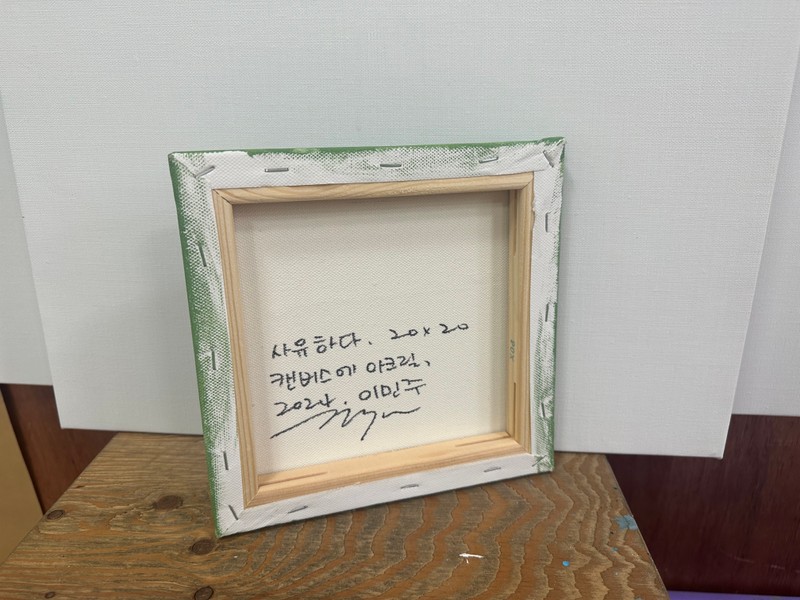 사유하다. 20x20
캔버스에 아크릴,
2024. 이민주